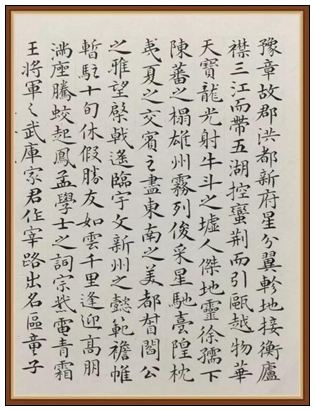 豫章故郡洪都新府星分翼軫地接衡廬
襟三江而帶五湖控蠻荊而引甌越物華
天寶龍光射牛斗之墟人傑地靈徐孺下
陳蕃之榻雄州霧列俊采星馳臺隍枕
夷夏之交賓主盡東南之美都督閻公
之雅望棨戟遙臨宇文新州之懿範襜帷
暫駐十旬休假勝友如雲千里逢迎高朋
滿座騰蛟起鳳孟學士之詞宗紫電青霜
王將軍之武庫家君作宰路出名區童子